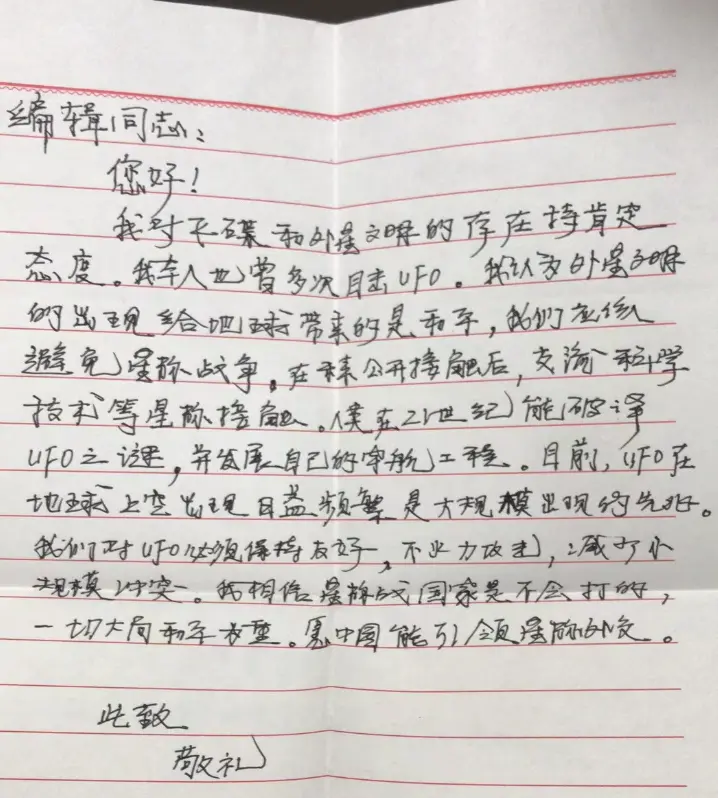 编辑同志：
您好！
我对飞碟和外星文明的存在持肯定
态度。我本人也曾多次目击UFO。我认为外星文明
的出现给地球带来的是和平，我们应该
避免星际战争。在未公开接触后，交流科学
技术等星际接触。僕在21世纪能破译
UFO之谜，并发展自己的宇航工程。目前，UFO在
地球上空出现日益频繁是大规模出现的先兆。
我们对UFO必须保持友好，不以力攻击，减少小
规模冲突。我相信星际战国家是不会打的，
一切大局和平为重。愿中国能引领星际外交。
此致
敬礼